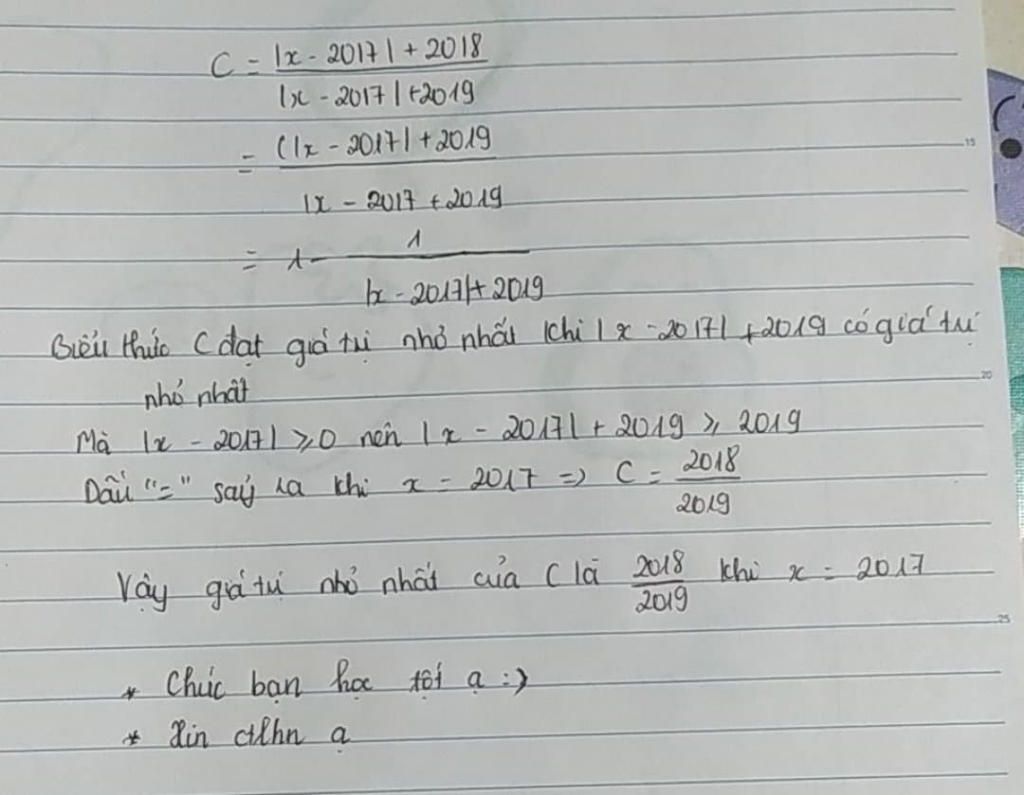 C = |x - 2017| + 2018 / |x - 2017| + 2019
= (|x - 2017| + 2019 / |x - 2017 + 2019
= 1 - 1 / |x - 2017| + 2019
Biểu thức C đạt giá trị nhỏ nhất khi |x - 2017| + 2019 có giá trị
nhỏ nhất
Mà |x - 2017| ≥ 0 nên |x - 2017| + 2019 ≥ 2019
Dấu "=" sảy ra khi x = 2017 => C = 2018 / 2019
Vậy giá trị nhỏ nhất của C là 2018 / 2019 khi x = 2017
* Chúc bạn học tốt ạ :)
* Xin ctlhn ạ
15
20
25